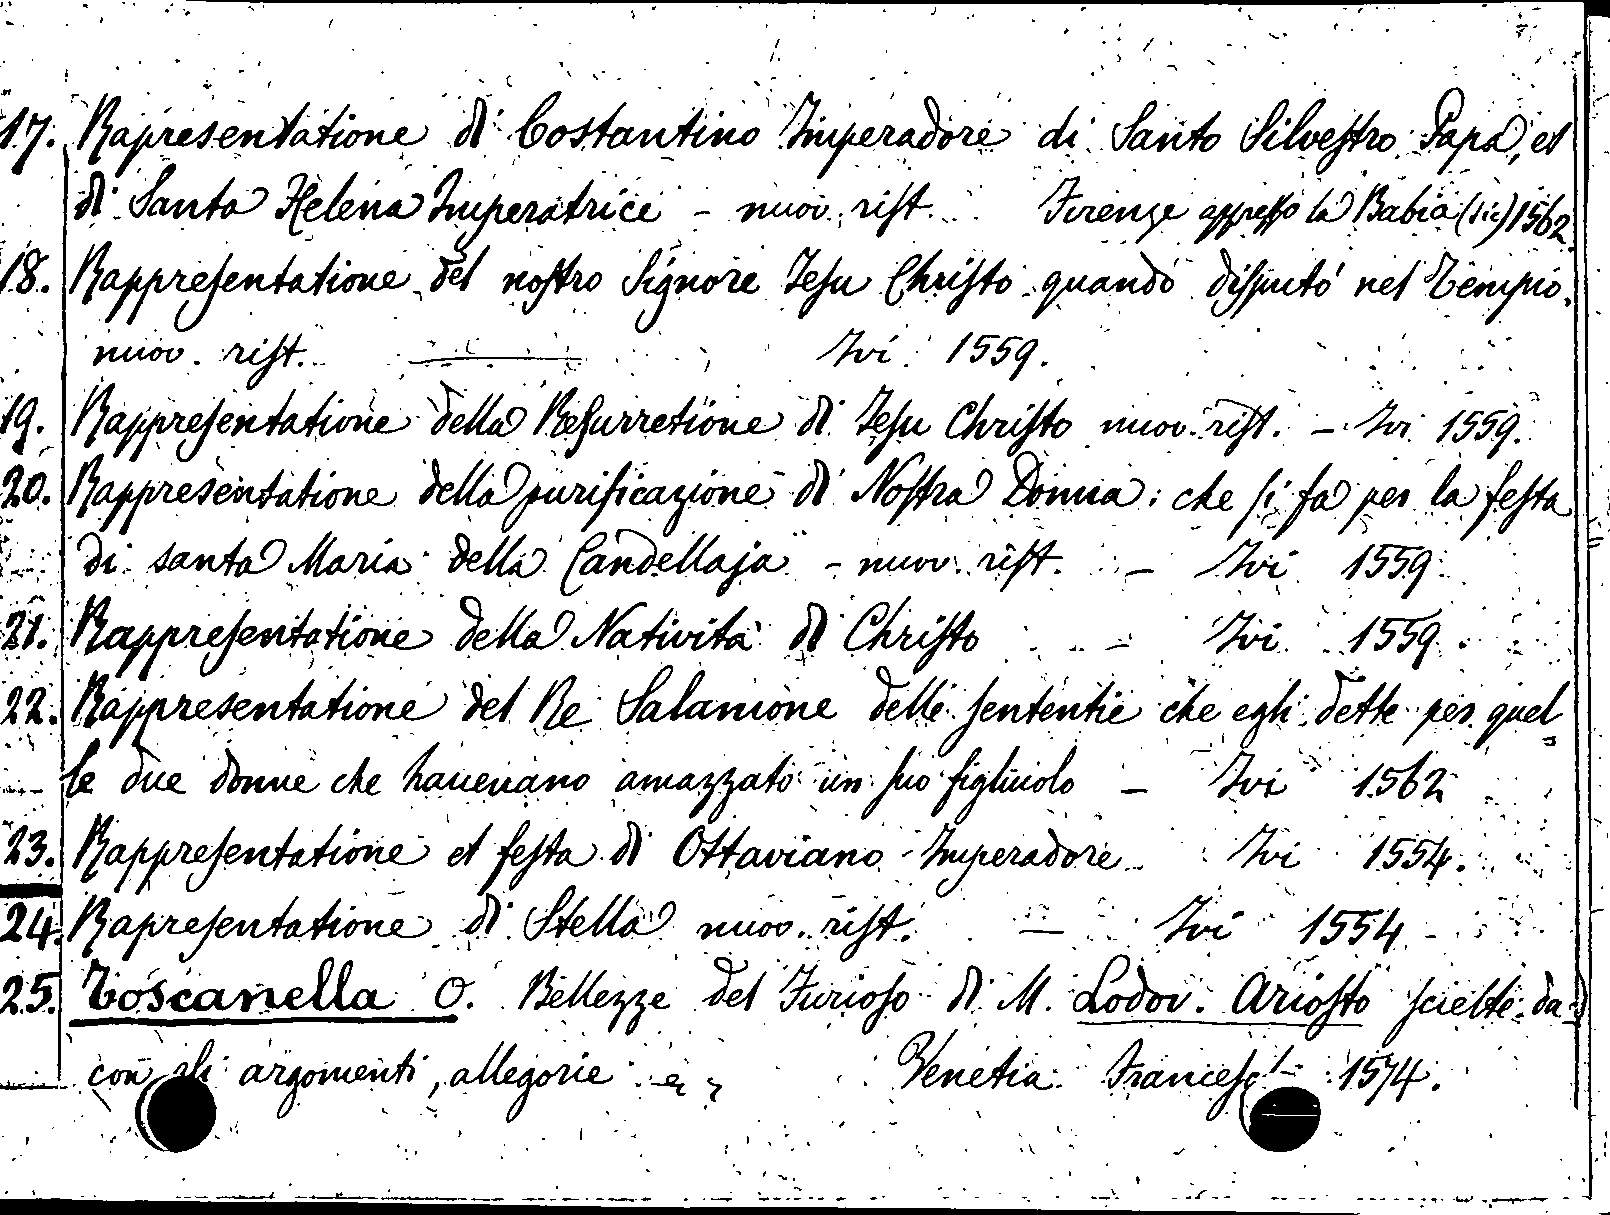 17. Rapresentatione di Costantino Imperadore di Santo Silvestro Papa, et
di Santa Helena Imperatrice - nuov. rist. Firenze appresso la Babia (sic) 1562.
18. Rappresentatione del nostro Signore Jesu Christo quando disputó nel Tempio.
nuov. rist. — Ivi 1559.
19. Rappresentatione della Resurretione di Jesu Christo nuov. rist. - Ivi 1559.
20. Rappresentatione della purificazione di Nostra Donna: che si fa per la festa
di santa Maria della Candellaja - nuov. rist. - Ivi 1559
21. Rappresentatione della Nativita di Christo - Ivi 1559.
22. Rappresentatione del Re Salamone delle sententie che egli dette per quel
le due donne che haueuano amazzato un suo figliuolo - Ivi 1562
23. Rappresentatione et festa di Ottaviano Imperadore Ivi 1554.
24. Rapresentatione di Stella nuov. rist. - Ivi 1554
25. Toscanella O. Bellezze del Furioso di M. Lodov. Ariosto scielte da
con gli argomenti, allegorie Venetia 1574.